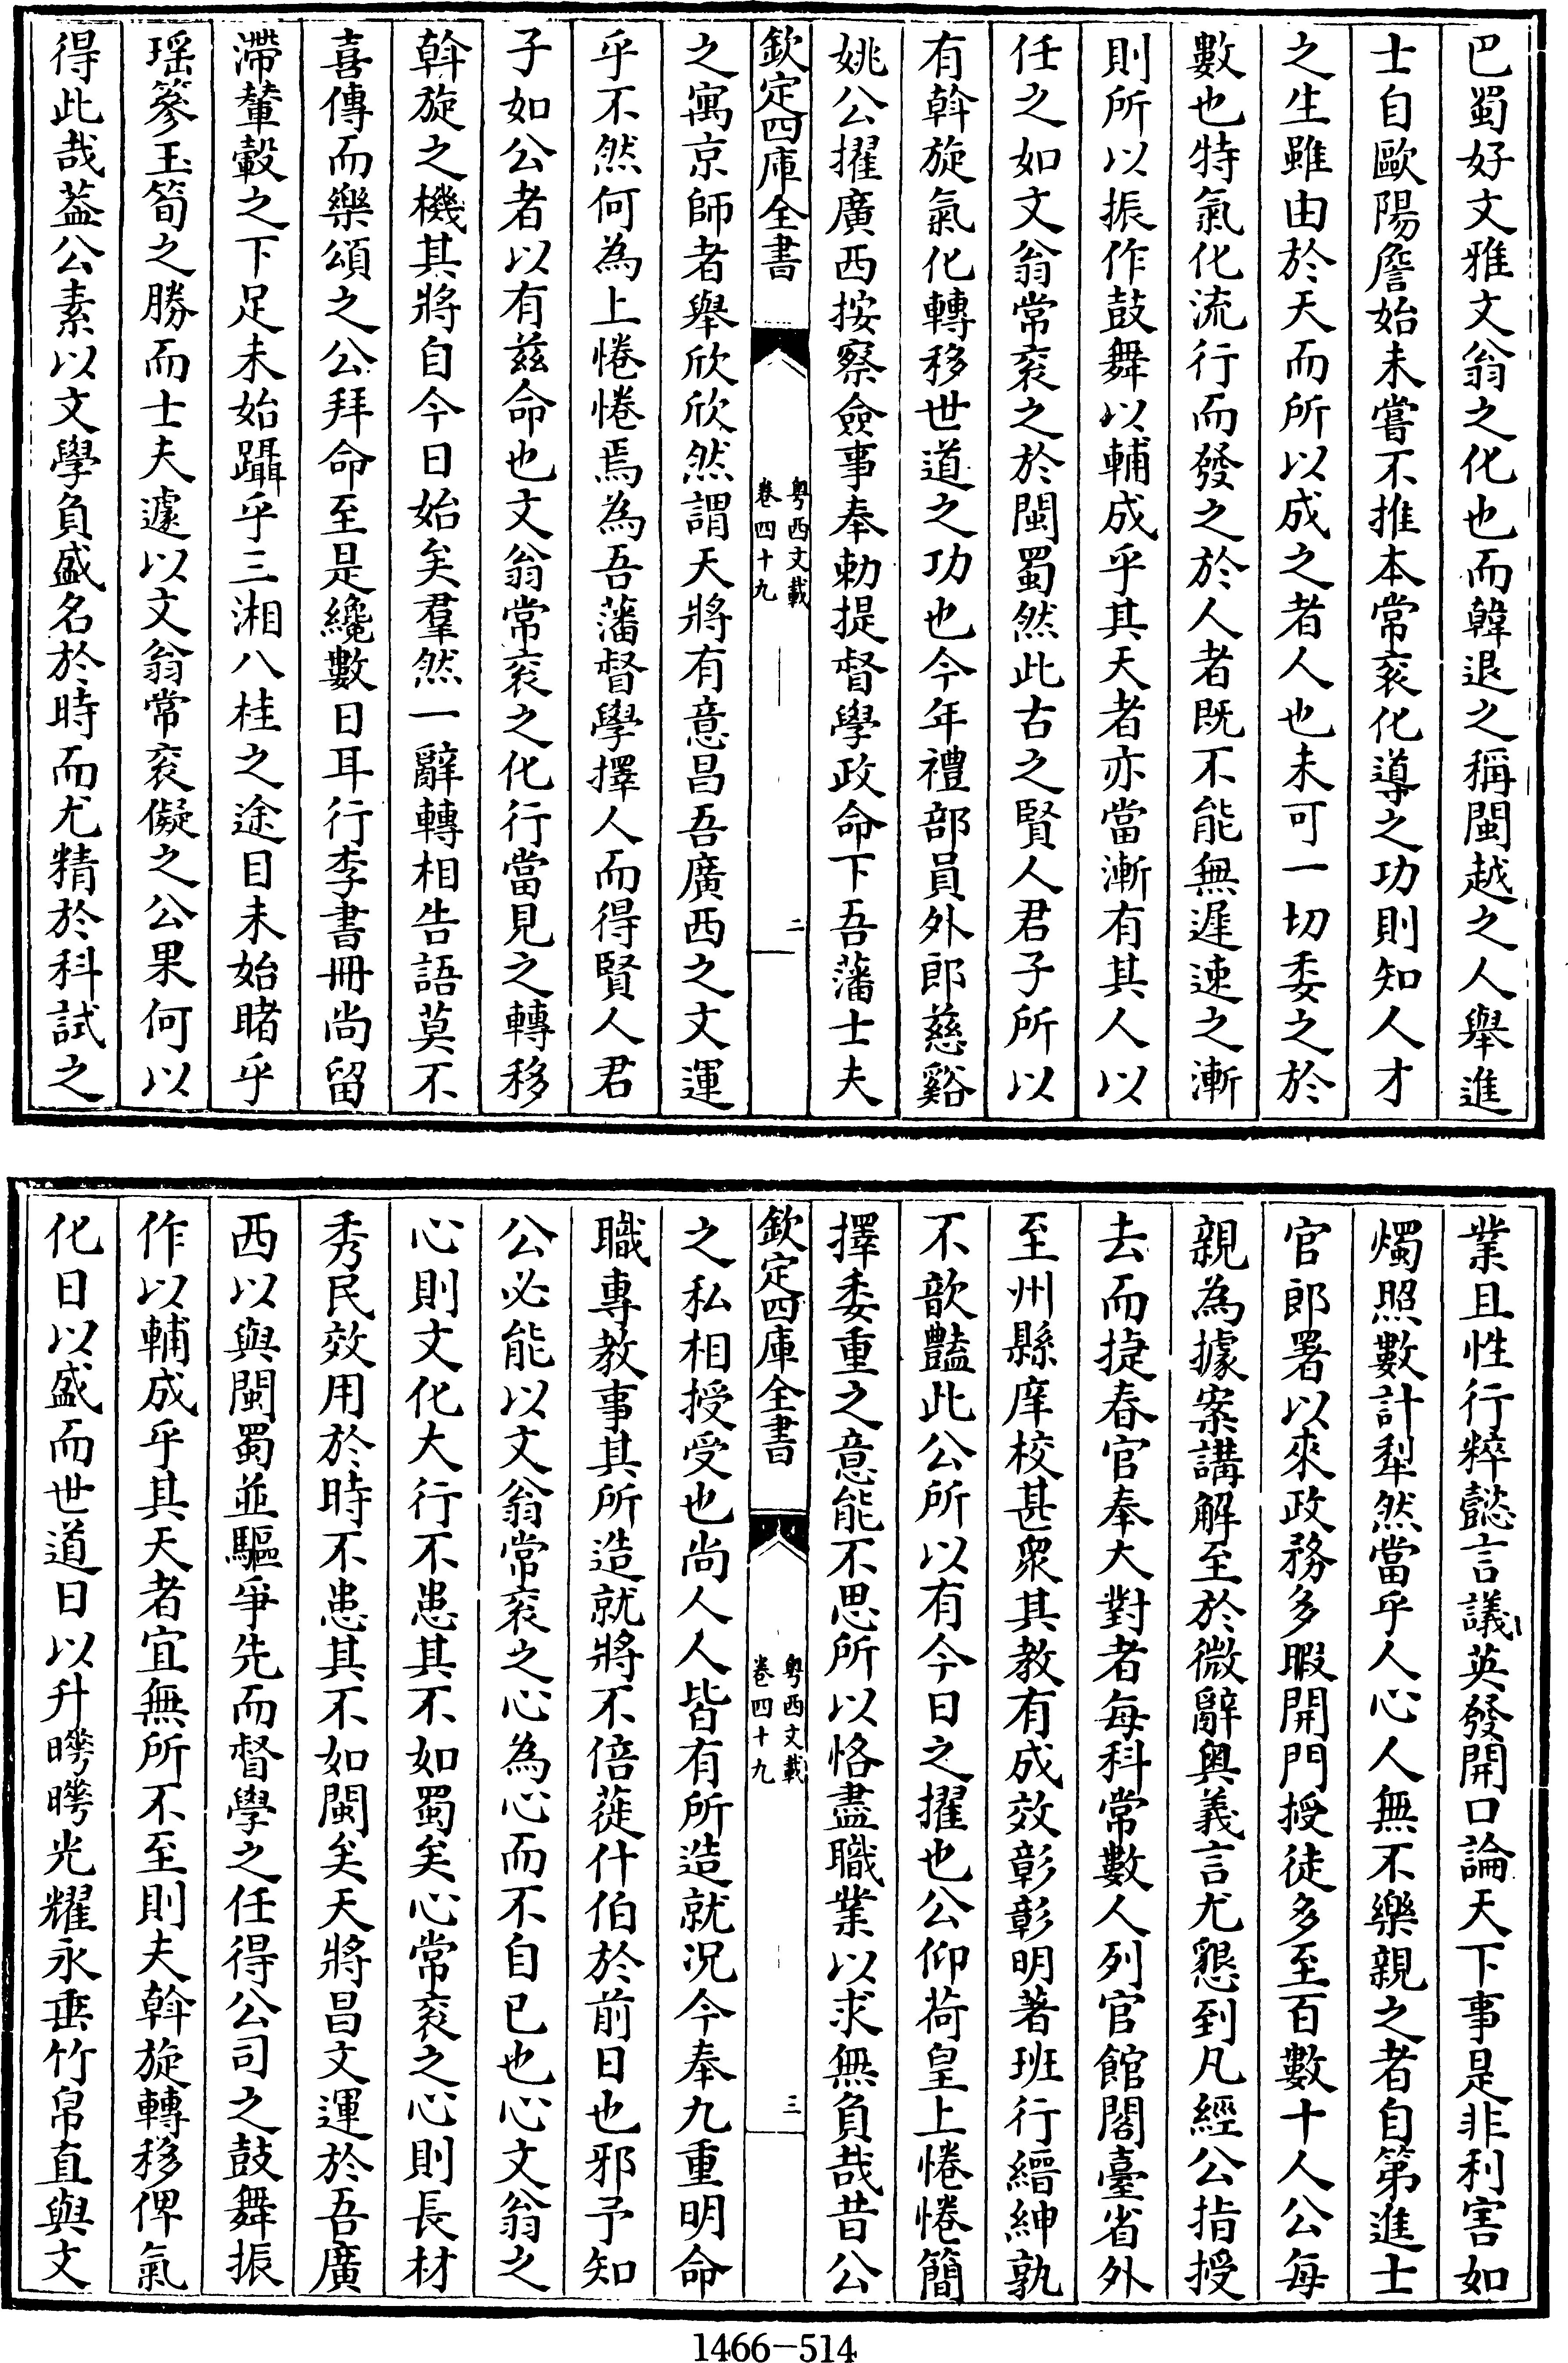 巴蜀好文雅文翁之化也而韓退之稱閩越之人舉進
士自歐陽詹始未嘗不推本常衮化導之功則知人才
之生雖由於天而所以成之者人也未可一切委之於
數也特氣化流行而發之於人者既不能無遲速之漸
則所以振作鼓舞以輔成乎其天者亦當漸有其人以
任之如文翁常衮之於閩蜀然此古之賢人君子所以
有斡旋氣化轉移世道之功也今年禮部員外郎慈谿
姚公擢廣西按察僉事奉勅提督學政命下吾藩士夫
欽定四庫全書
粵西文載
卷四十九
二
之寓京師者舉欣欣然謂天將有意昌吾廣西之文運
乎不然何為上惓惓焉為吾藩督學擇人而得賢人君
子如公者以有兹命也文翁常衮之化行當見之轉移
斡旋之機其將自今日始矣羣然一辭轉相告語莫不
喜傳而樂頌之公拜命至是纔數日耳行李書冊尚留
滯輦轂之下足未始躡乎三湘八桂之途目未始睹乎
瑶篸玉筍之勝而士夫遽以文翁常衮儗之公果何以
得此哉葢公素以文學負盛名於時而尤精於科試之
業且性行粹懿言議英發開口論天下事是非利害如
燭照數計犁然當乎人心人無不樂親之者自第進士
官郎署以來政務多暇開門授徒多至百數十人公每
親為據案講解至於微辭奥義言尤懇到凡經公指授
去而捷春官奉大對者每科常數人列官館閣臺省外
至州縣庠校甚衆其教有成效彰彰明著班行縉紳孰
不歆豔此公所以有今日之擢也公仰荷皇上惓惓簡
擇委重之意能不思所以恪盡職業以求無負哉昔公
欽定四庫全書
粵西文載
卷四十九
三
之私相授受也尚人人皆有所造就况今奉九重明命
職專教事其所造就將不倍蓰什伯於前日也邪予知
公必能以文翁常衮之心為心而不自已也心文翁之
心則文化大行不患其不如蜀矣心常衮之心則長材
秀民效用於時不患其不如閩矣天將昌文運於吾廣
西以與閩蜀並驅爭先而督學之任得公司之鼓舞振
作以輔成乎其天者宜無所不至則夫斡旋轉移俾氣
化日以盛而世道日以升曄曄光耀永垂竹帛直與文
1466-514